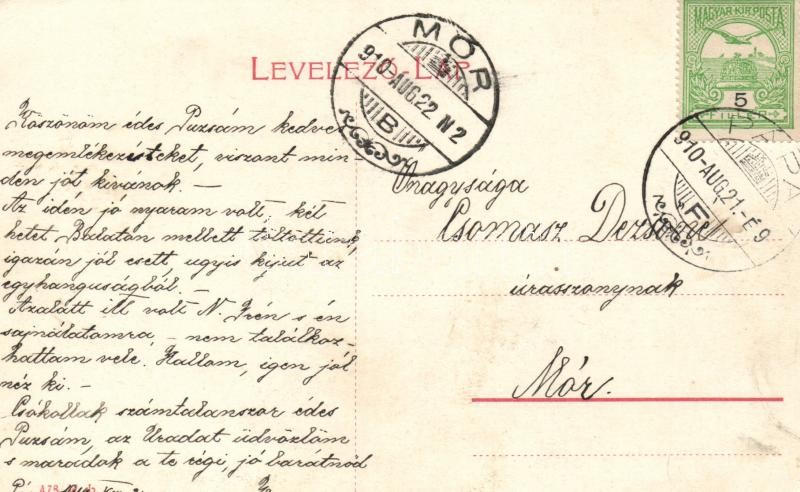 LEVELEZŐ-LAP
MÓR
910-AUG.22 N2
B
MAGYAR KIR. POSTA
5
FILLÉR
910-AUG.21.É9
F
Köszönöm édes Puzsám kedves
megemlékezésteket, viszont min-
den jót kivánok. —
Az idén jó nyaram volt, két
hetet Balaton mellett töltöttünk,
igazán jól esett, ugyis kijut az
egyhanguságból. —
Azalatt itt volt N. Irén s én
sajnálatomra, — nem találkoz-
hattam vele. Hallom, igen jól
néz ki. —
Csókollak számtalanszor édes
Puzsám, az Uradat üdvözlöm
s maradok a te régi, jó barátnőd
Őnagysága
Csomasz Dezsőné
úrasszonynak
Mór.